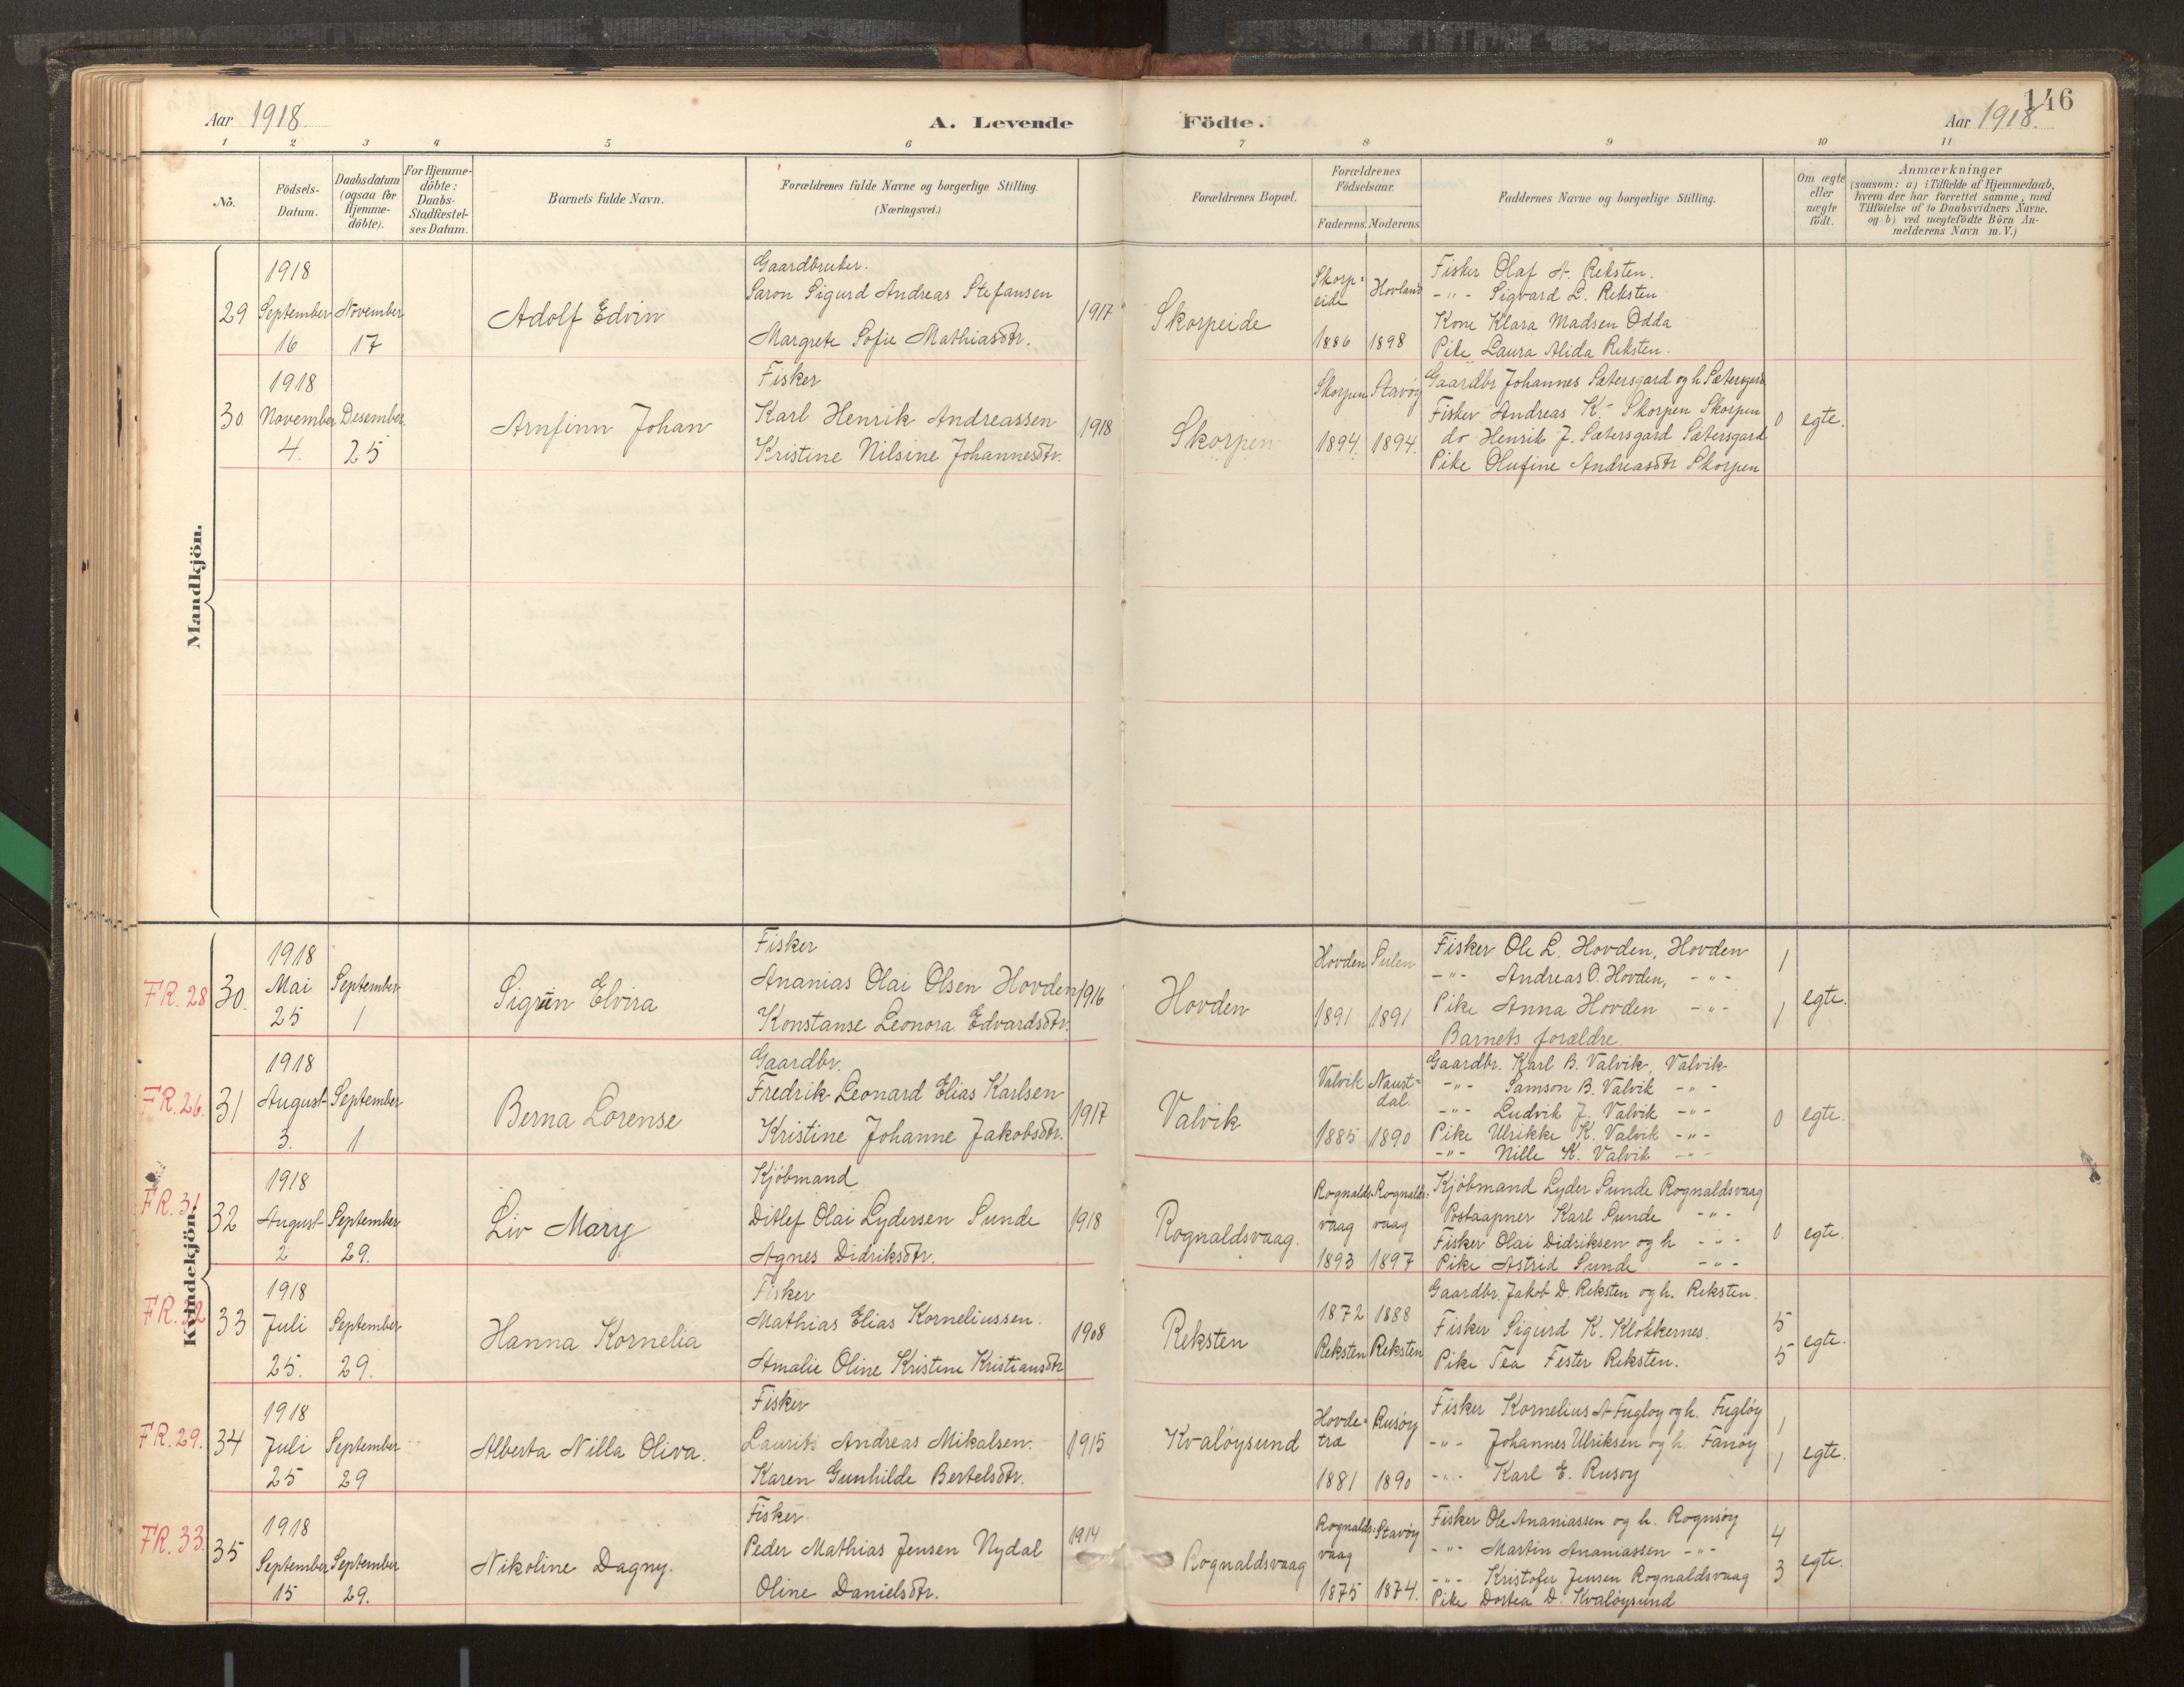 Aar 1918
A. Levende
Födte.
146
Aar 1918.
1 2 3 4 5 6 7 8 9 10 11
No.
Födsels-
Datum.
Daabsdatum
(ogsaa for
Hjemme-
döbte).
For Hjemme-
döbte:
Daabs-
Stadfæstel-
ses Datum.
Barnets fulde Navn.
Forældrenes fulde Navne og borgerlige Stilling.
(Næringsvei.)
Forældrenes Bopæl.
Forældrenes
Födselsaar.
Faderens. Moderens.
Faddernes Navne og borgerlige Stilling.
Om ægte
eller
uægte
födt.
Anmærkninger
(saasom: a) i Tilfælde af Hjemmedaab,
hvem der har forrettet samme, med
Tilföielse af to Daabsvidners Navne,
og b) ved uægtefödte Börn An-
melderens Navn m. V.)
Mandkjön.
29
1918
September
16
November
17
Adolf Edvin
Gaardbruker.
Saron Sigurd Andreas Stefansen
Margrete Sofie Mathiasdtr.
1917
Skorpeide
Skorp-
eide
1886
Hovland
1898
Fisker Olaf A. Reksten.
-"- Sigvard L. Reksten
Kone Klara Madsen Odda
Pike Laura Alida Reksten.
30
1918
November
4.
Desember
25
Arnfinn Johan
Fisker
Karl Henrik Andreassen
Kristine Nilsine Johannesdtr.
1918
Skorpen
Skorpen
1894.
Stavöy
1894.
Gaardbr Johannes Sætersgard og h. Sætersgard
Fisker Andreas K. Skorpen Skorpen
do Henrik J. Sætersgard Sætersgard
Pike Olufine Andreasdtr Skorpen
0
egte.
Kvindekjön.
FR. 28
30.
1918
Mai
25
September
1
Sigrun Elvira
Fisker
Ananias Olai Olsen Hovden
Konstanse Leonora Edvardsdtr.
1916
Hovden
Hovden
1891
Sulen
1891
Fisker Ole L. Hovden, Hovden
-"- Andreas O. Hovden, -"-
Pike Anna Hovden -"-
Barnets forældre.
1
1
egte.
FR. 26.
31
1918
August
3.
September
1
Berna Lorense
Gaardbr.
Fredrik Leonard Elias Karlsen
Kristine Johanne Jakobsdtr.
1917
Valvik
Valvik
1885
Naust-
dal.
1890
Gaardbr. Karl B. Valvik, Valvik
-"- Samson B. Valvik -"-
-"- Ludvik J. Valvik -"-
Pike Ulrikke K. Valvik -"-
-"- Nille K. Valvik -"-
0
egte.
FR. 31
32
1918
August
2
September
29.
Liv Mary
Kjöbmand
Ditlef Olai Lydersen Sunde
Agnes Didriksdtr.
1918
Rognaldsvaag.
Rognalds-
vaag
1893
Rognalds-
vaag
1897
Kjöbmand Lyder Sunde Rognaldsvaag
Postaapner Karl Sunde -"-
Fisker Olai Didriksen og h -"-
Pike Astrid Sunde -"-
0
egte.
FR. 32
33
1918
Juli
25.
September
29.
Hanna Kornelia
Fisker
Mathias Elias Korneliussen.
Amalie Oline Kristine Kristiansdtr
1908
Reksten
1872
Reksten
1888
Reksten
Gaardbr. Jakob D. Reksten og h. Reksten.
Fisker Sigurd K. Klokkernes.
Pike Tea Fester Reksten.
5
5
egte.
FR. 29.
34
1918
Juli
25
September
29
Alberta Nilla Oliva.
Fisker
Laurits Andreas Mikalsen.
Karen Gunhilde Bertelsdtr.
1915
Kvalöysund
Hovde-
træ
1881
Rusöy
1890
Fisker Kornelius A Fuglöy og h. Fuglöy
-"- Johannes Ulriksen og h. Fanöy
-"- Karl E. Rusöy
1
1
egte.
FR. 33.
35
1918
September
15
September
29.
Nikoline Dagny.
Fisker
Peder Mathias Jensen Nydal
Oline Danielsdtr.
1914
Rognaldsvaag
Rognalds-
vaag
1875
Stavöy
1874.
Fisker Ole Ananiassen og h. Rognsöy
-"- Martin Ananiassen -"-
-"- Kristofer Jensen Rognaldsvaag
Pike Dortea D. Kvalöysund
4
3
egte.